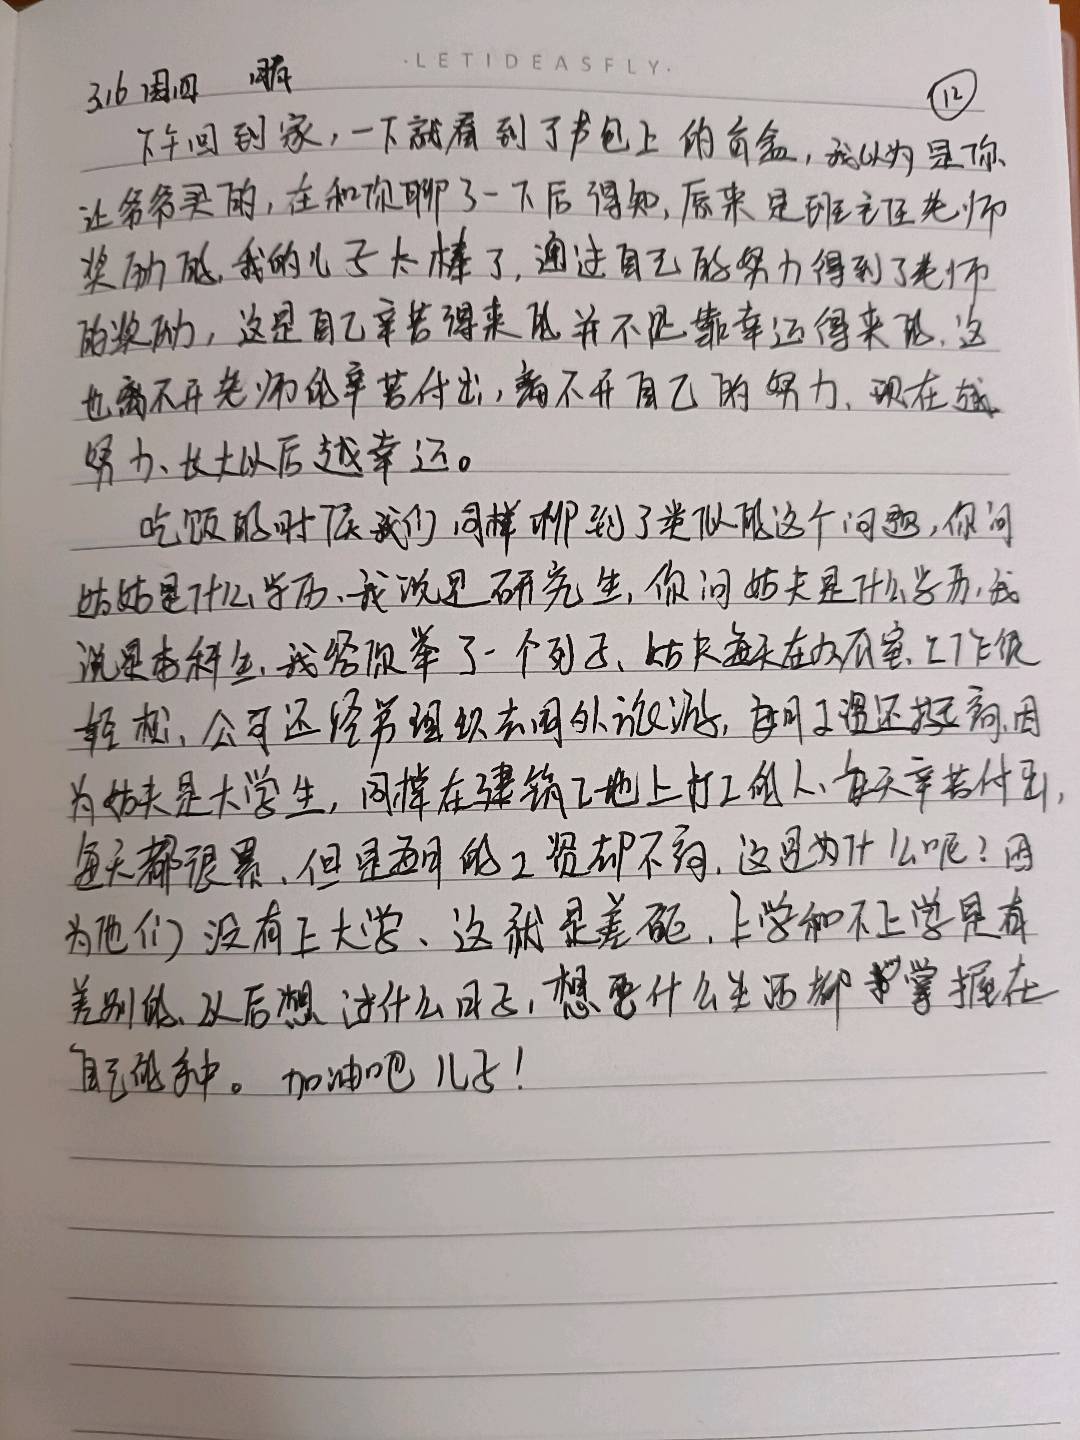 ·LETIDEASFLY·
3.16 周四 晴
12
下午回到家，一下就看到了书包上的盲盒，我以为是你
让爷爷买的，在和你聊了一下后得知，原来是班主任老师
奖励的，我的儿子太棒了，通过自己的努力得到了老师
的奖励，这是自己辛苦得来的并不是靠幸运得来的，这
也离不开老师的辛苦付出，离不开自己的努力、现在越
努力、长大以后越幸运。
吃饭的时候我们同样聊到了类似的这个问题，你问
姑姑是什么学历、我说是研究生，你问姑夫是什么学历，我
说是本科生、我给你举了一个列子、姑夫每天在办公室、工作很
轻松、公司还经常组织去国外旅游，每月工资还挺高，因
为姑夫是大学生，同样在建筑工地上打工的人、每天辛苦付出，
每天都很累、但是每月的工资却不高，这是为什么呢？因
为他们没有上大学、这就是差距，上学和不上学是有
差别的、以后想过什么日子，想要什么生活都掌握在
自己的手中。加油吧儿子！